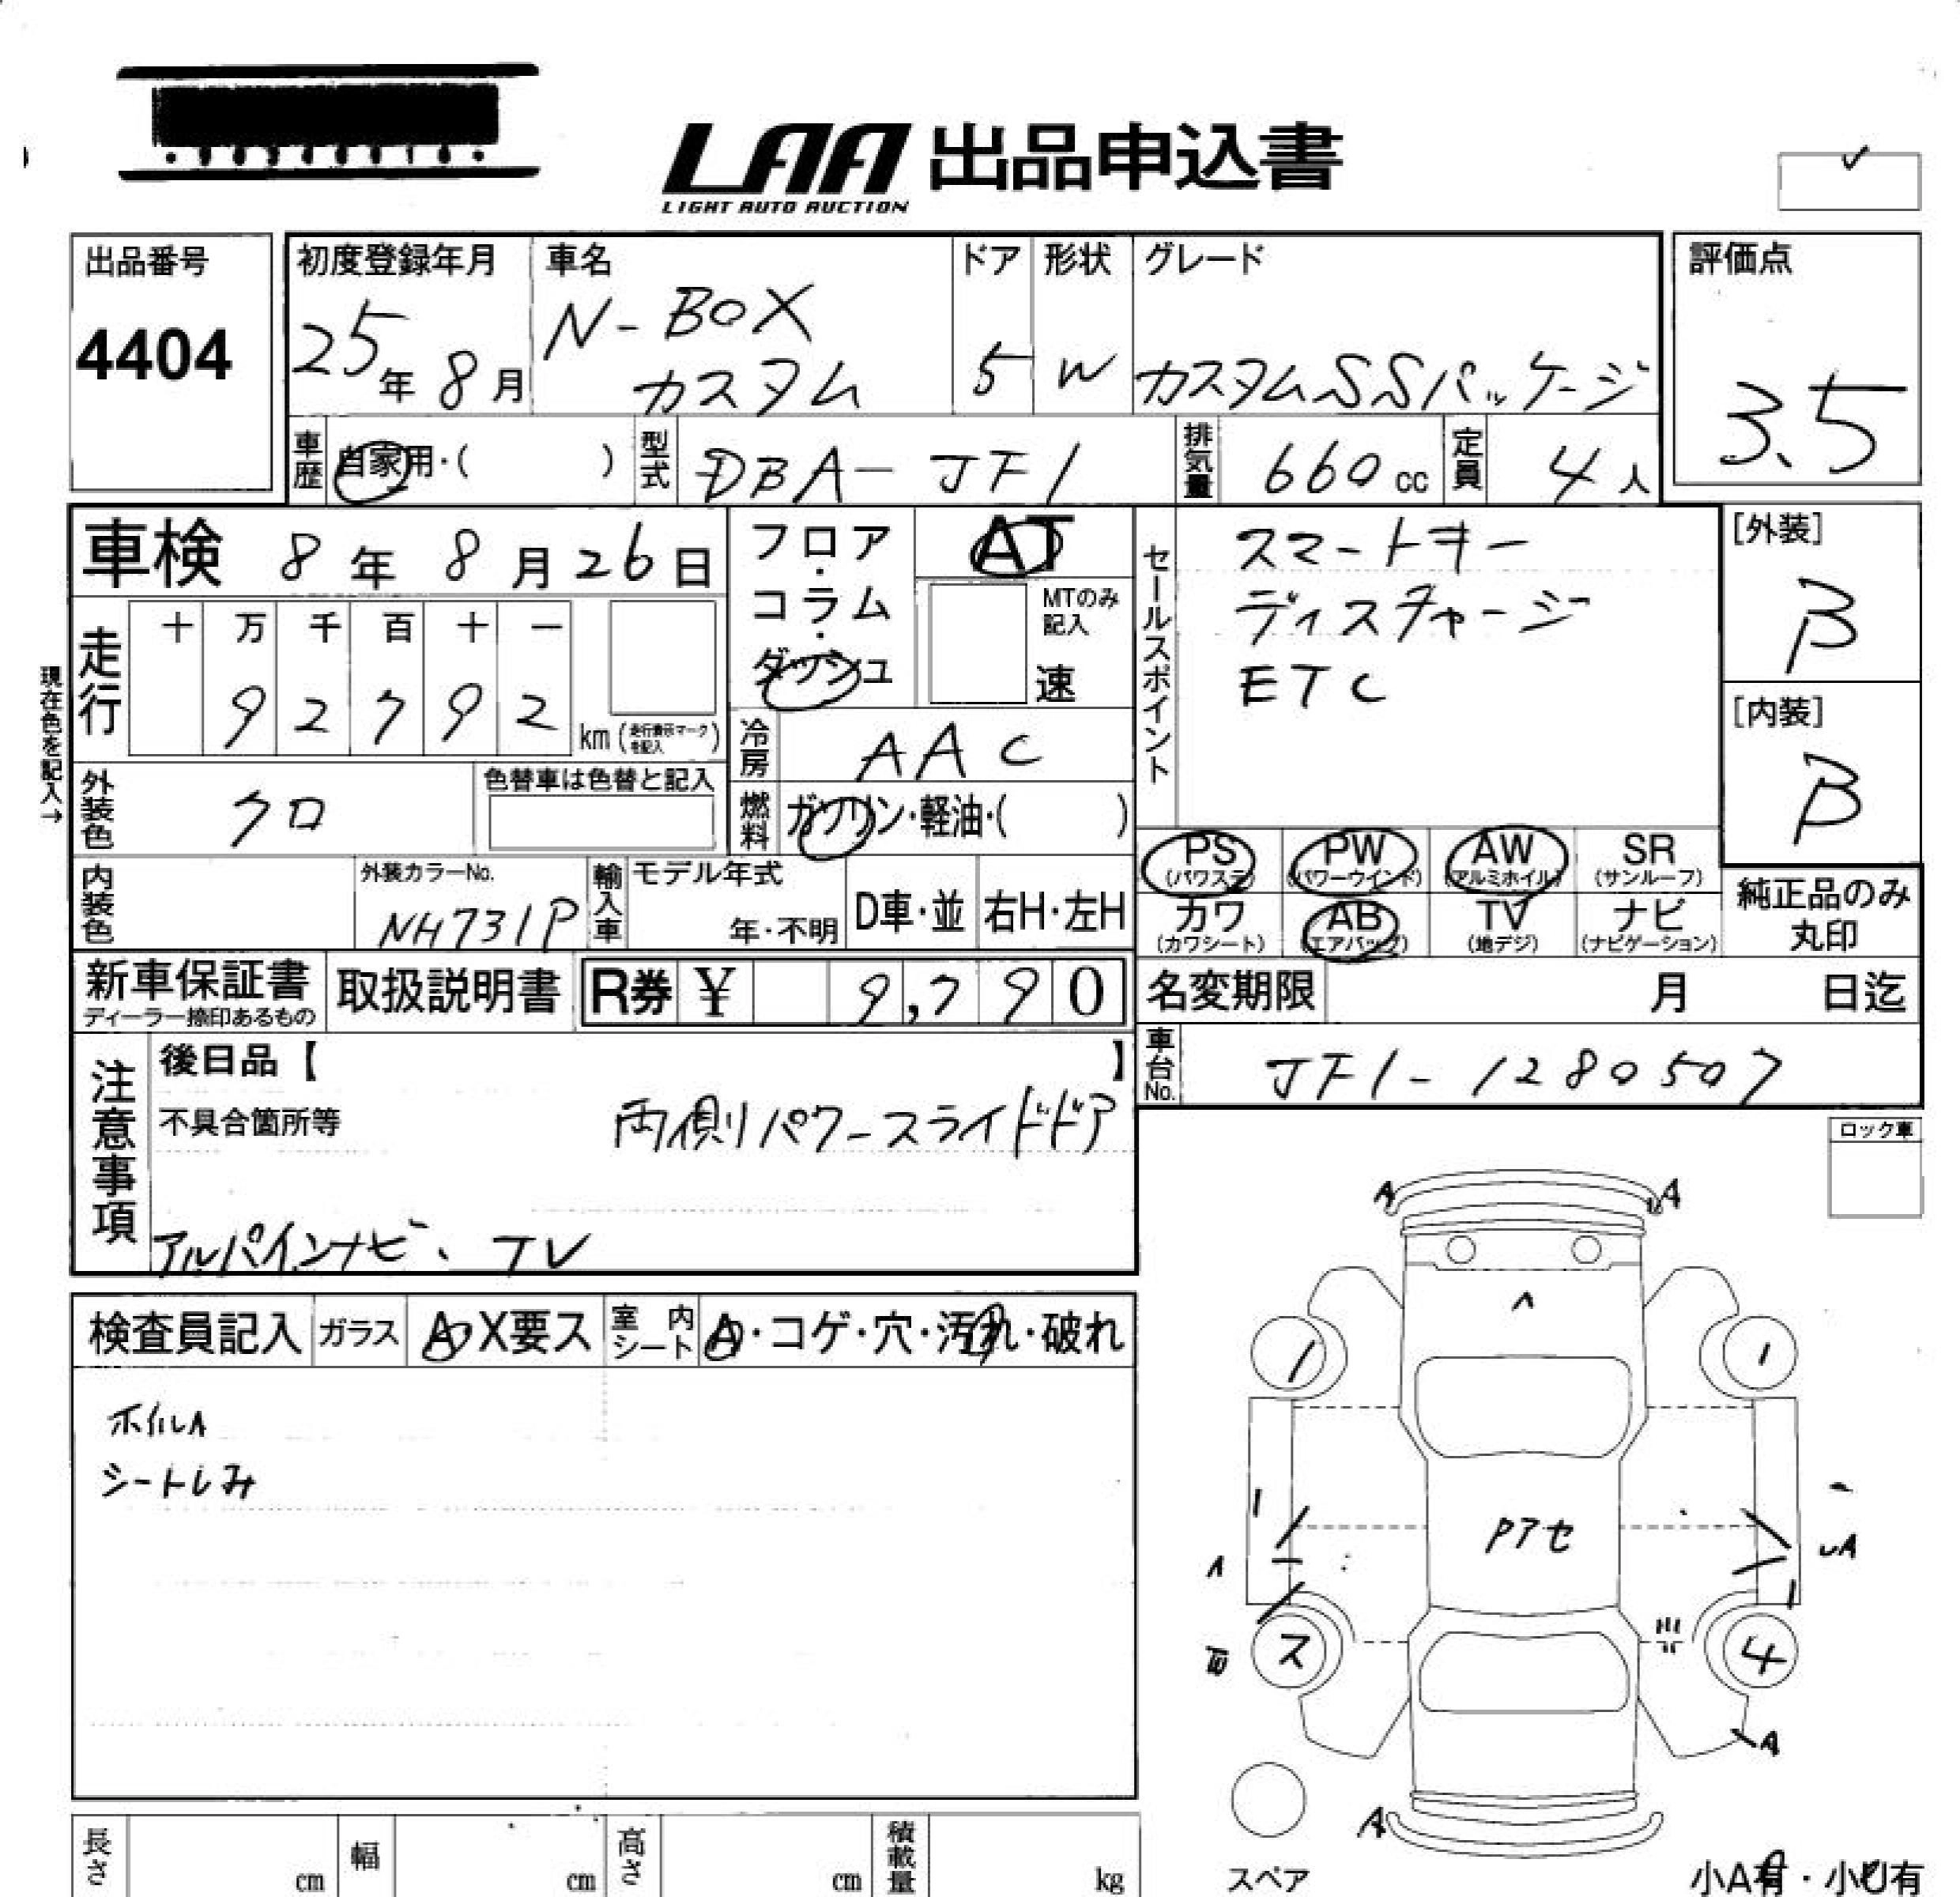 LAA 出品申込書
LIGHT AUTO AUCTION
出品番号
4404
初度登録年月
25年8月
車名
N-BOX
カスタム
ドア
5
形状
W
グレード
カスタムSSパッケージ
評価点
3.5
車歴
自家用・( )
型式
DBA-JF1
排気量
660cc
定員
4人
車検 8年8月26日
現在色を記入→
走行
十 万 千 百 十 一
9 2 7 9 2 km(走行表示マークを記入)
フロア・コラム・ダッシュ
AT
MTのみ記入
速
冷房
AAC
燃料
ガソリン・軽油・( )
セールスポイント
スマートキー
ディスチャージ
ETC
[外装]
B
[内装]
B
外装色
クロ
色替車は色替と記入
内装色
外装カラーNo.
NH731P
輸入車
モデル年式
年・不明
D車・並
右H・左H
PS
(パワステ)
PW
(パワーウインド)
AW
(アルミホイル)
SR
(サンルーフ)
カワ
(カワシート)
AB
(エアバッグ)
TV
(地デジ)
ナビ
(ナビゲーション)
純正品のみ
丸印
新車保証書
ディーラー捺印あるもの
取扱説明書
R券 ¥ 9,790
名変期限 月 日迄
車台No.
JF1-1280507
注意事項
後日品【 】
不具合箇所等
両側パワースライドドア
アルパインナビ、TV
ロック車
検査員記入
ガラス
A X要ス
室内シート
A・コゲ・穴・汚れ・破れ
ホイルA
シートしみ
A A
A
1 1
1
Pアセ
A
A
1
ス
4
A
A
スペア
小A有・小U有
長さ cm
幅 cm
高さ cm
積載量 kg